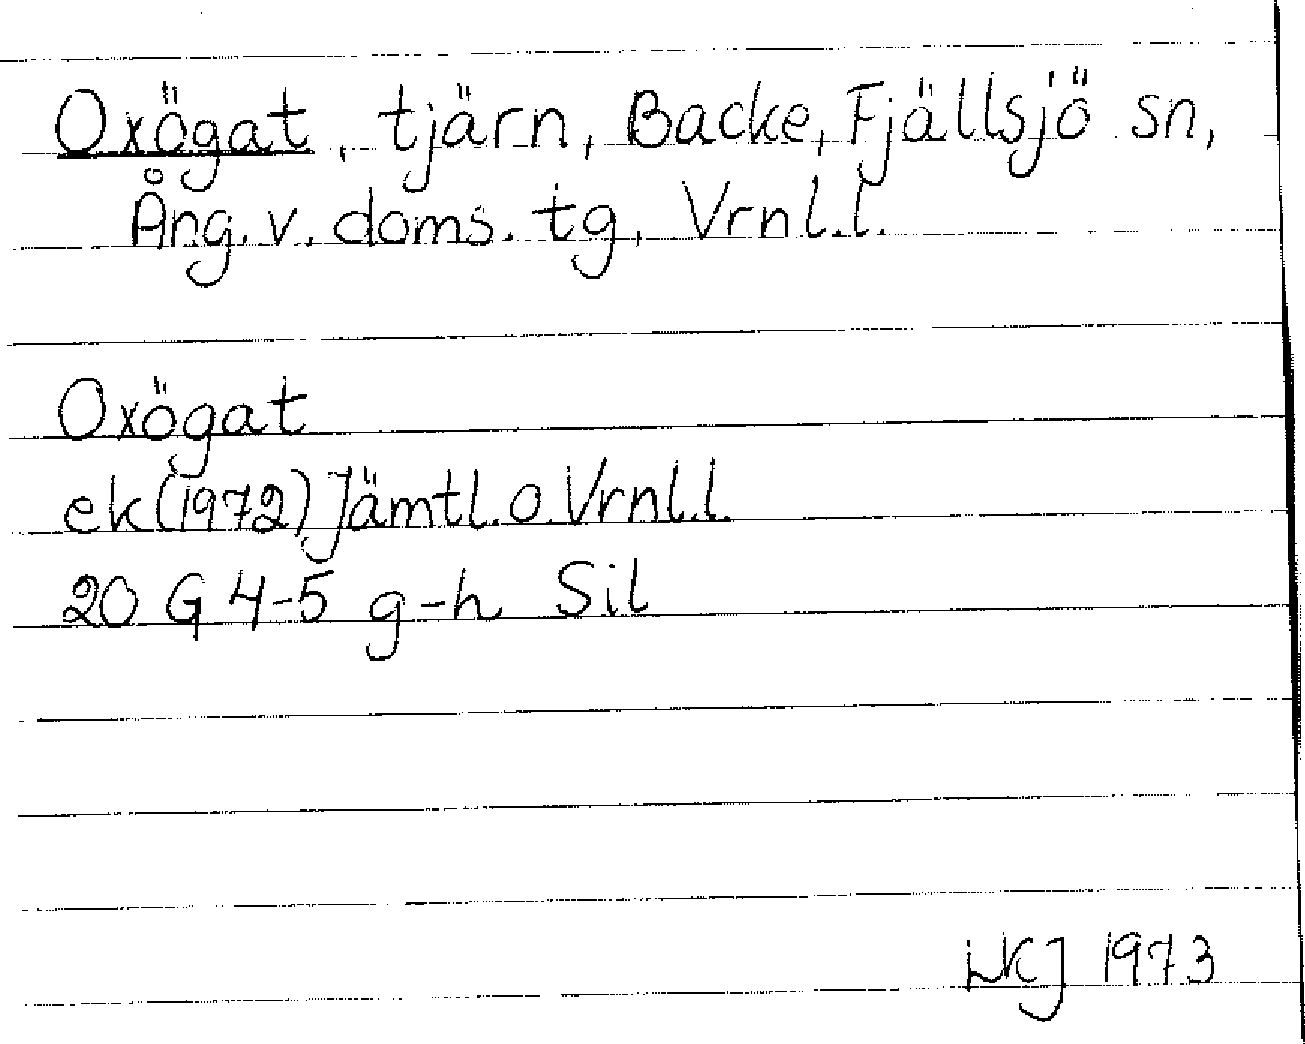 Oxögat, tjärn, Backe, Fjällsjö sn,
Ång. v. doms. tg, Vrnl.l.
Oxögat
ek (1972) Jämtl. o. Vrnl.l.
20 G 4-5 g-h Sil
1973